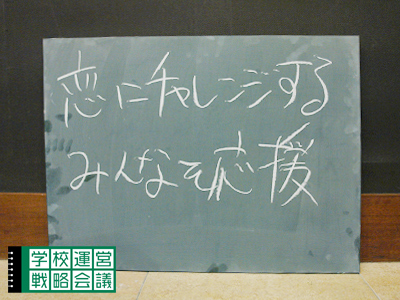 恋にチャレンジする
みんなを応援
学校運営
戦略会議